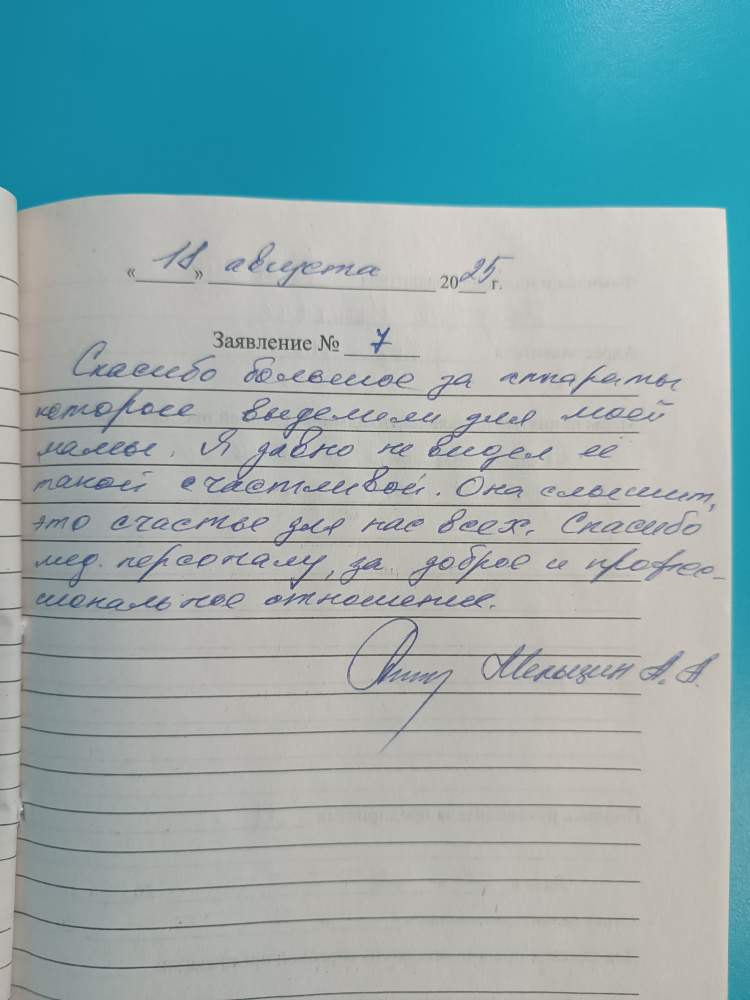 « 18 » августа 2025 г.
Заявление № 7
Спасибо большое за аппараты
которые выделили для моей
мамы. Я давно не видел её
такой счастливой. Она слышит,
это счастье для нас всех. Спасибо
мед. персоналу, за доброе и профес-
сиональное отношение.
А. А.